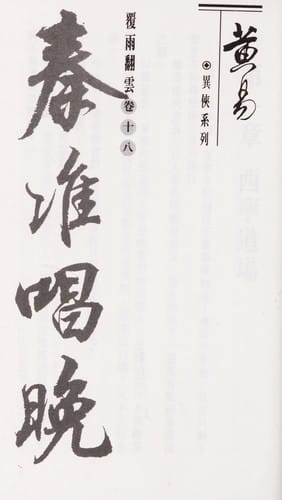 黃易
◉異俠系列
覆雨翻雲卷十八
秦淮唱晚